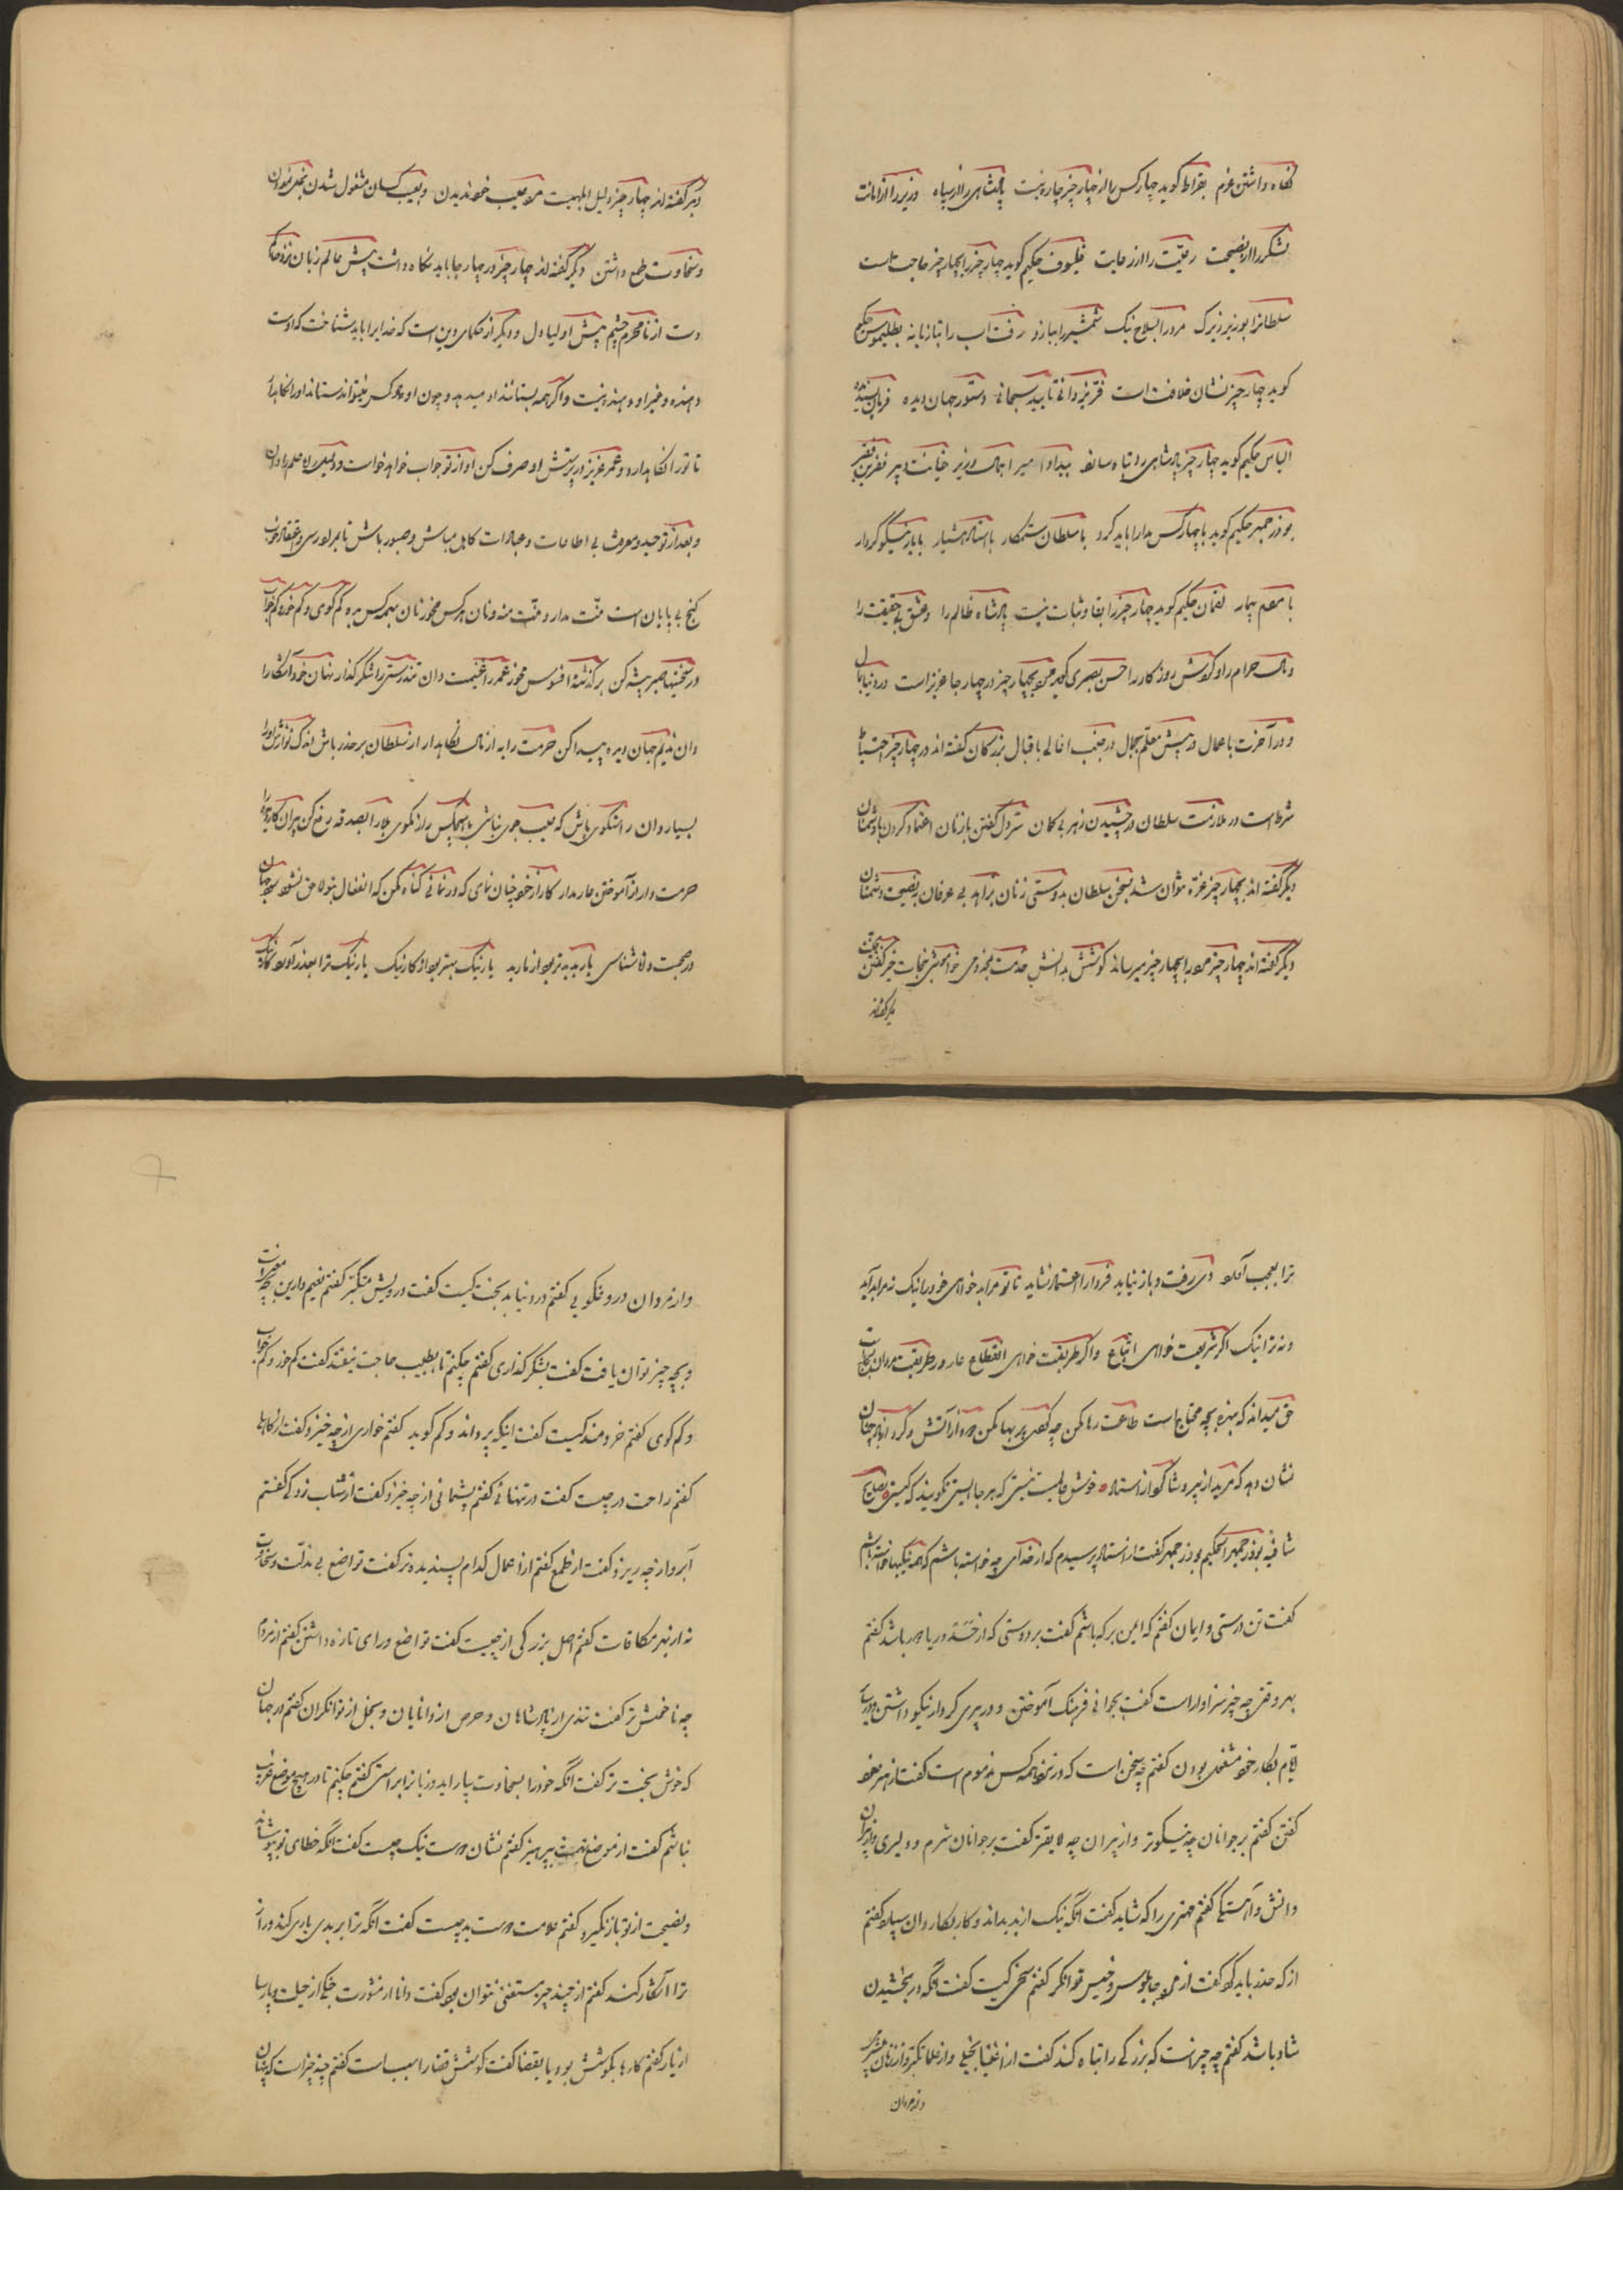 نگاه داشتن عزم بقراط گوید چهار کس را از چهار چیز چاره نیست پادشاهی را از سپاه وزیر را از امانت
لشکر را از نصیحت رعیت را از رعایت فیلسوف حکیم گوید چهار چیز را بچهار چیز حاجت است
سلطانرا بوزیر زیرک مرد را بسلاح نیک شمشیر را ببازو رفت اسب را بتازیانه بطلیموس حکیم
گوید چهار چیز نشان خلافت است فر یزدانی تایید سبحانی دستور جهان دیده فرمان پسندیده
الیاس حکیم گوید چهار چیز پادشاهی را تباه سازد بیداد امیر اهمال وزیر خیانت دبیر نفرین فقیر
بوذرجمهر حکیم گوید با چهار کس مدارا باید کرد با سلطان ستمکار با استاد هشیار با یار نیکوکردار
با مردم بیمار لقمان حکیم گوید چهار چیز را بقا و ثبات نیست پادشاه ظالم را و عشق بی حقیقت را
و مال حرام را و کوشش روزکار را حسن بصری گوید مرد بچهار چیز در چهار جا عزیز است در دنیا بمال
و در آخرت باعمال در پیش معلم بجمال در جنب اعالی باقبال بزرکان گفته اند در چهار چیز احتیاط
شرط است در ملازمت سلطان در چشیدن زهر بی کمان سر دل گفتن بازنان اعتماد کردن با دشمنان
دیگر گفته اند بچهار چیز غره نتوان شد بسخن سلطان بدوستی زنان بزاهد بی عرفان بنصیحت دشمنان
دیگر گفته اند چهار چیز مرد را بچهار چیز میرساند کوشش بدانش خدمت بمخدومی خاموشی بنجات خیر گفتن
دیگر گفته اند
دیگر گفته اند چهار چیز دلیل ابلهیست مرد بعیب خود ندیدن و بعیب کسان مشغول شدن بخیلی نمودن
و سخاوت طمع داشتن دیگر گفته اند چهار چیز در چهار جا باید نگاه داشت پیش عالم زبان نزد حاکم
دست از نامحرم چشم پیش اولیا دل و دیگر از حکمای دین است که خدایرا باید شناخت که اوست
دهنده و غیر او دهنده نیست و اگر همه بستانند او میدهد و چون او دهد کس نتواند ستاند اورا نگاهدار
تا تورا نگاهدارد و عمر عزیز در پرستش او صرف کن او از تو جواب خواهد خواست
و بعد از توحید و معرفت بی اطاعات و عبادات کاهل مباش و صبور باش تا بمراد رسی
کنج بی پایان است منت مدار و منت منه و نان هر کس مخور نان بهمه کس بده کم گوی و کم خور و کم خواب
در سختیها صبر پیشه کن بر گذشته افسوس مخور عمر را غنیمت دان تندرستی را شکر گذار نهان خود آشکار را
دان ندیم جهان دیده پیدا کن حرمت را به از مال نگاهدار از سلطان بر حذر باش اندک نوازش اورا
بسیار دان راستگوی باش که عیب جوی نباشی بهیچکس راز نگوی بلا را بصدقه رفع کن پیران کار دیده را
حرمت دار از آموختن عار مدار کار از خود چنان نمای که درنمانی گناه مکن که انفعال بتو لاحق نشود
در صحبت وفا شناسی یار بد بدتر بود از مار بد یار نیک بهتر بود از کار نیک یار نیک ترا بعذر آورد
ترا بعجب آورد دی رفت و باز نیاید فردا را اعتماد نشاید تا تو مراد خواهی خود را نیک نه مرا بد آید
و نه ترا نیک اگر شریعت خواهی اتباع و اگر طریقت خواهی انقطاع عار در طریقت
حق میداند که بنده بچه محتاج است طاعت رها مکن چه کردی پر بها مکن
نشان دهد که مرید از پیر و شاگرد از استاد خوش عالمیست نیستی که هر جا ایستی نگویند که کیستی نصایح
شافیه بوذرجمهر الحکیم بوذرجمهر گفت از استاد پرسیدم که از خدای چه خواسته باشم که همه نیکیها خواسته باشم
گفت تن درستی و ایمان گفتم که ایمن بر که باشم گفت بر دوستی که از حسد و ریا دور باشد گفتم
بهر وقتی چه چیز سزاوار است گفت بجوانی فرهنک آموختن و در پیری کردار نیکو داشتن
ایام بکار خود مشغول بودن گفتم چه سخن است که در نزد همه کس مذموم است گفت از هنر خود
گفتن گفتم بر جوانان چه نیکوتر و از پیران چه لایقتر گفت بر جوانان شرم و دلیری و از پیران
دانش و آهستگی گفتم مهتری را که شاید گفت آنکه نیک از بد بداند و کار بکاردان سپارد گفتم
از که حذر باید کرد گفت از مرد چاپلوس و خسیس توانگر گفتم سخی کیست گفت آنکه در بخشیدن
شاد باشد گفتم چه چیز است که بزرگی را تباه کند گفت از اغنیا بخیلی و از علما تکبر و از زنان
و از مردان
و از مردان دروغگویی گفتم در دنیا بدبخت کیست گفت درویش متکبر گفتم نعیم دارین بچه معیر است
و بچه چیز توان یافت گفت بشکر گذاری گفتم چکنم تا بطبیب حاجت نیفتد گفت کم خور و کم خواب
و کم گوی گفتم خردمند کیست گفت اینکه پر داند و کم گوید گفتم خواری از چه خیزد گفت از کاهلی
گفتم راحت در چیست گفت در تنهائی گفتم پشیمانی از چه خیزد گفت از شتاب زدگی گفتم
آبرو از چه ریزد گفت از طمع گفتم از اعمال کدام پسندیده تر گفت تواضع بی مذلت و سخاوت
نه از بهر مکافات گفتم اصل بزرگی از چیست گفت تواضع و رای تازه داشتن گفتم از مردم
چه ناخوش تر گفت تندی از پادشاهان و حرص از دانایان و بخل از توانگران گفتم در جهان
که خوش بخت تر گفت آنکه خود را بسخاوت بیاراید و زبانرا براستی گفتم چکنم تا در هیچ موضع غریب
نباشم گفت از موضع تهمت بپرهیز گفتم نشان دوست نیک چیست گفت آنکه خطای تو بپوشاند
و نصیحت از تو باز نگیرد گفتم علامت دوست بد چیست گفت آنکه ترا بر بدی یاری کند و راز
ترا آشکار کند گفتم از چند چیز مستغنی نتوان بود گفت دانا از مشورت جنگی از حیلت و پارسا
از یار گفتم کارها بکوشش بود یا بقضا گفت کوشش قضا را سبب است گفتم چه چیز است که پنهان